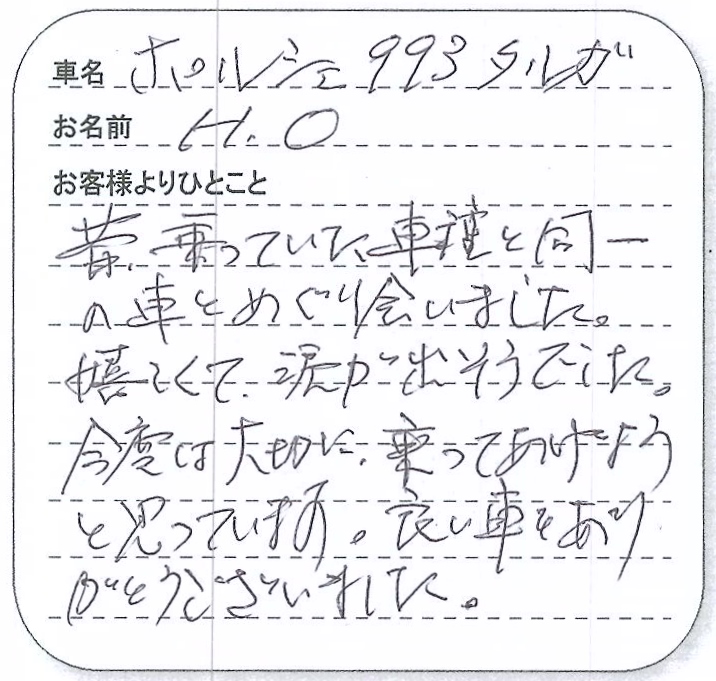 車名 ポルシェ 993 タルガ
お名前 H.O
お客様よりひとこと
昔、乗っていた、車種と同一
の車とめぐり会いました。
嬉しくて、涙が出そうでした。
今度は大切に、乗ってあげよう
と思っています。良い車をあり
がとうございました。